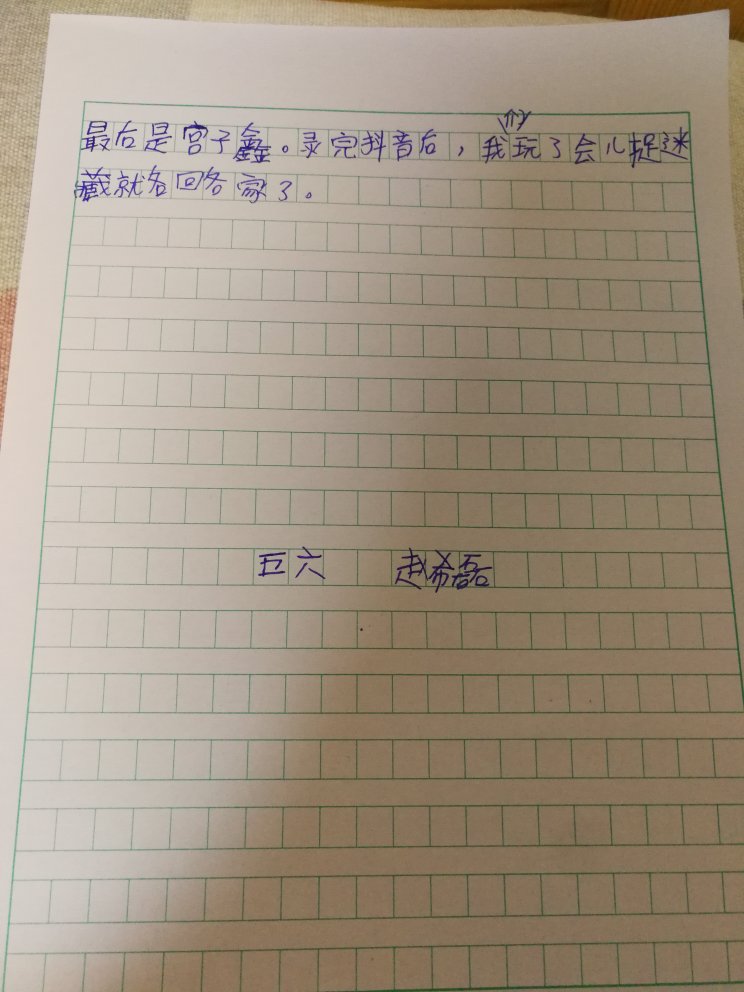 最后是宫子鑫。录完抖音后，我们玩了会儿捉迷
藏就各回各家了。
巨六 赵希磊